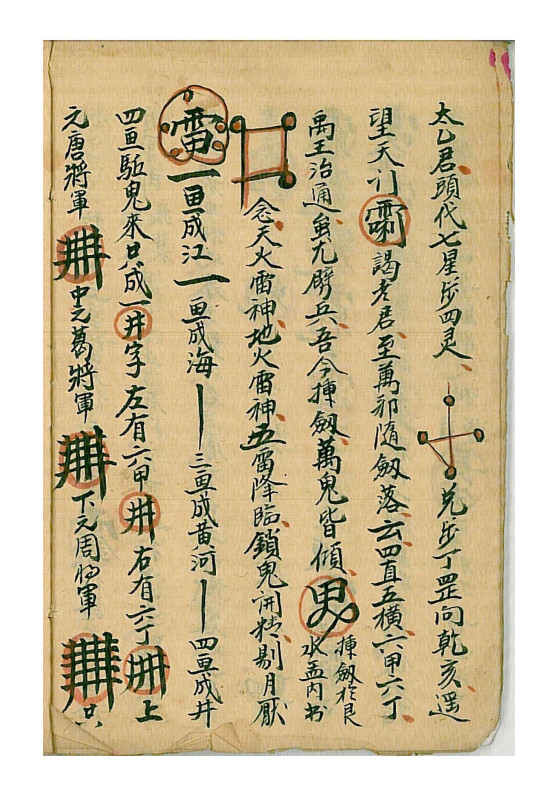 太乙君頭代七星步四灵 先步丁罡向乾亥遥
望天门 謁老君至萬邪随劔落云四直五横六甲六丁
禹王治通 九 兵吾令揮劔萬鬼皆傾 揮劔於艮
水盂内书
念天火雷神地火雷神五雷降臨鎖鬼 精剔月厭
雷 一画成江一画成海丨三画成黄河丨四画成井
四画駈鬼來 成一井字左有六甲井右有六丁 上
元唐將軍 中元葛將軍 下元周将軍